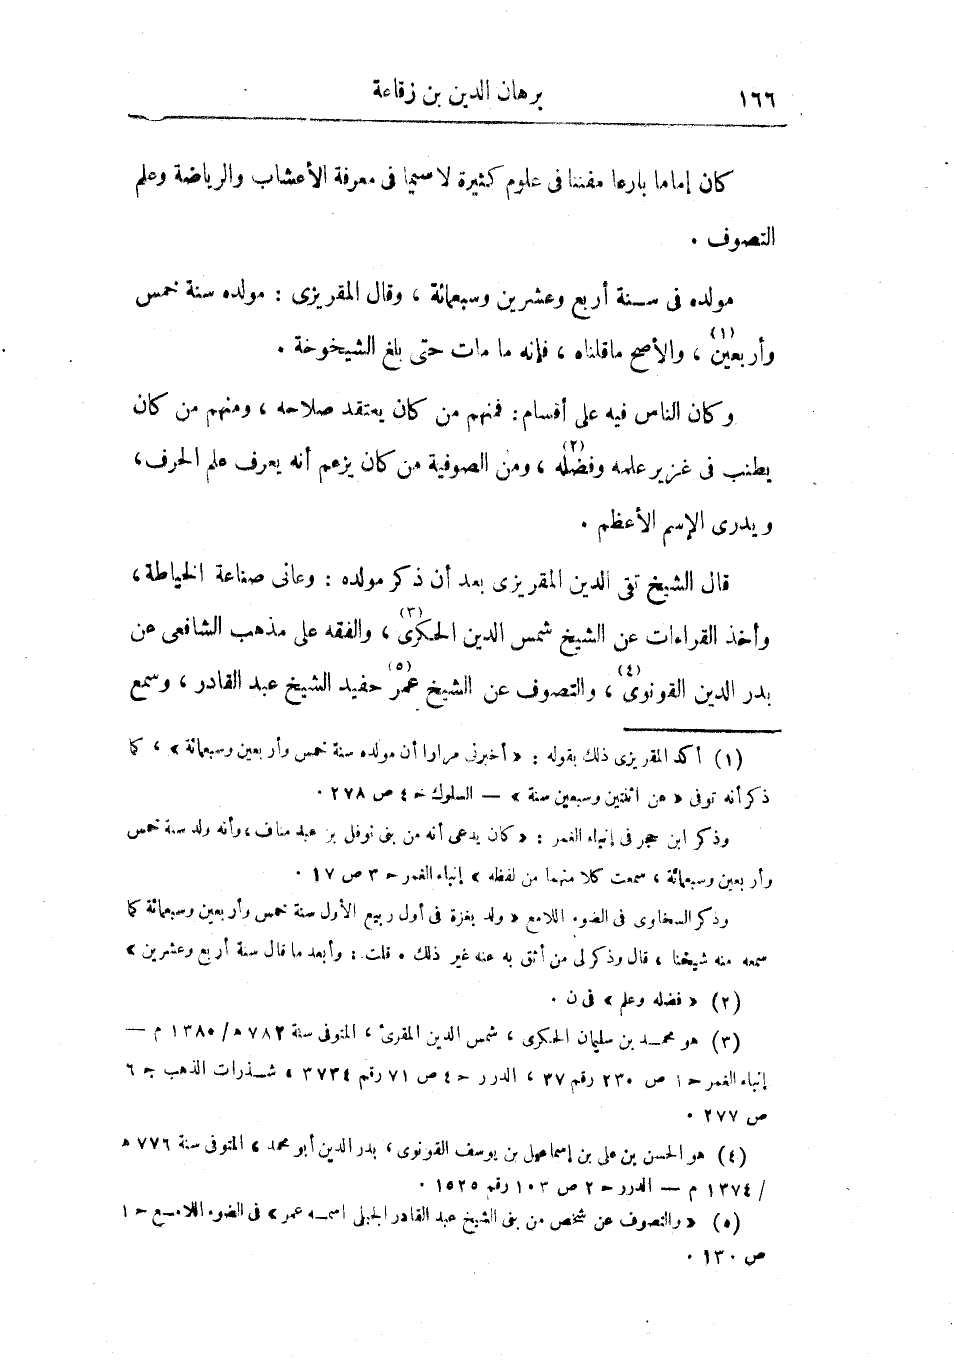 ١٦٦ برهان الدين بن زقاعة
كان إماما بارعا مفننا فى علوم كثيرة لاسيما فى معرفة الأعشاب والرياضة وعلم
التصوف .
مولده فى سنة أربع وعشرين وسبعمائة ، وقال المقريزى : مولده سنة خمس
وأربعين (١) ، والأصح ماقلناه ، فإنه ما مات حتى بلغ الشيخوخة .
وكان الناس فيه على أقسام : فمنهم من كان يعتقد صلاحه ، ومنهم من كان
يطنب فى غزير علمه وفضله (٢) ، ومن الصوفية من كان يزعم أنه يعرف علم الحرف ،
ويدرى الإسم الأعظم .
قال الشيخ تقى الدين المقريزى بعد أن ذكر مولده : وعانى صناعة الخياطة ،
وأخذ القراءات عن الشيخ شمس الدين الحكرى (٣) ، والفقه على مذهب الشافعى عن
بدر الدين القونوى (٤) ، والتصوف عن الشيخ عمر (٥) حفيد الشيخ عبد القادر ، وسمع
(١) أكد المقريزى ذلك بقوله : « أخبرنى مرارا أن مولده سنة خمس وأربعين وسبعمائة » ، كما
ذكر أنه توفى « عن اثنتين وسبعين سنة » — السلوك ح ٤ ص ٢٧٨ .
وذكر ابن حجر فى إنباء الغمر : « كان يدعى أنه من بنى نوفل بن عبد مناف ، وأنه ولد سنة خمس
وأربعين وسبعمائة ، سمعت كلا منهما من لفظه » إنباء الغمر ح ٣ ص ١٧ .
وذكر السخاوى فى الضوء اللامع « ولد بغزة فى أول ربيع الأول سنة خمس وأربعين وسبعمائة كما
سمعه منه شيخنا ، قال وذكر لى من أثق به عنه غير ذلك . قلت : وأبعد ما قال سنة أربع وعشرين »
(٢) « فضله وعلم » فى ن .
(٣) هو محمد بن سليمان الحكرى ، شمس الدين المقرئ ، المتوفى سنة ٧٨٢ ه/ ١٣٨٠ م —
إنباء الغمر ح ١ ص ٢٣٠ رقم ٣٧ ، الدرر ح ٤ ص ٧١ رقم ٣٧٣٤ ، شذرات الذهب ج ٦
ص ٢٧٧ .
(٤) هو الحسن بن على بن إسماعيل بن يوسف القونوى ، بدر الدين أبو محمد ، المتوفى سنة ٧٧٦ ه
/ ١٣٧٤ م — الدرر ح ٢ ص ١٠٣ رقم ١٥٢٥ .
(٥) « والتصوف عن شخص من بنى الشيخ عبد القادر الجبلى اسمه عمر » فى الضوء اللامع ح ١
ص ١٣٠ .